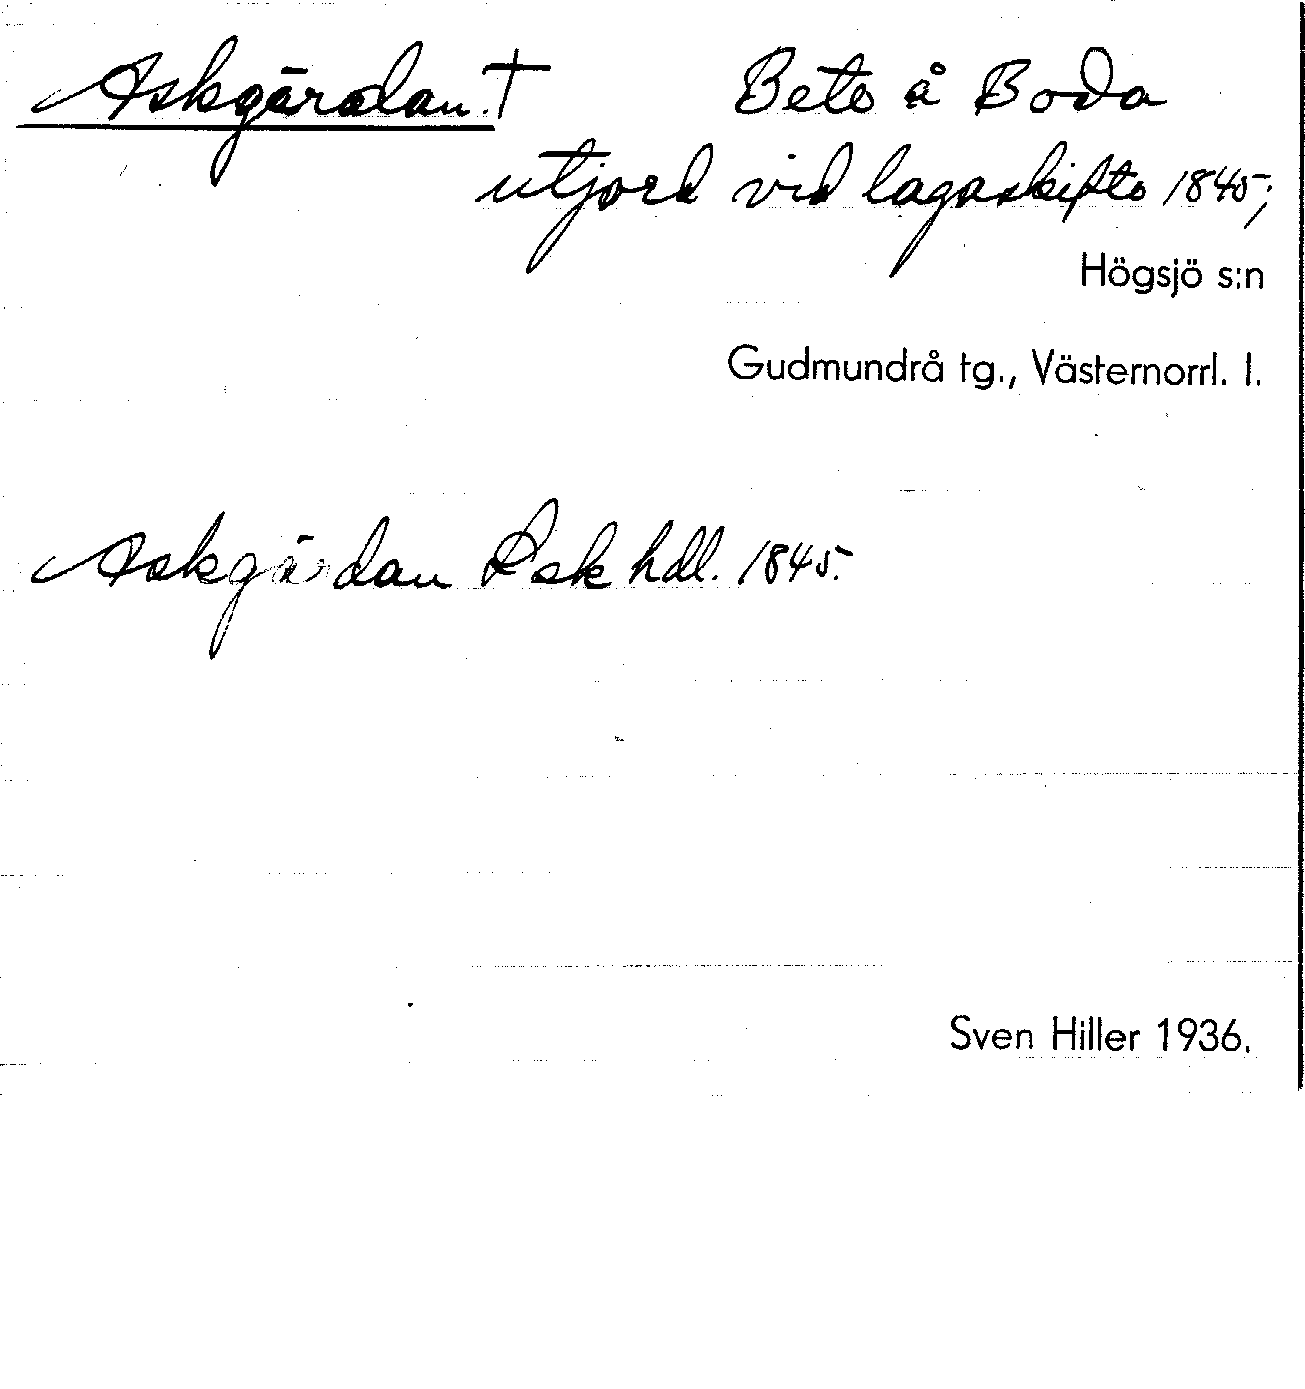 Askgärdan † Bete å Boda
utjord vid lagaskifte 1845;
Högsjö s:n
Gudmundrå tg., Västernorrl. l.
Askgärdan Lsk hdl. 1845.
Sven Hiller 1936.